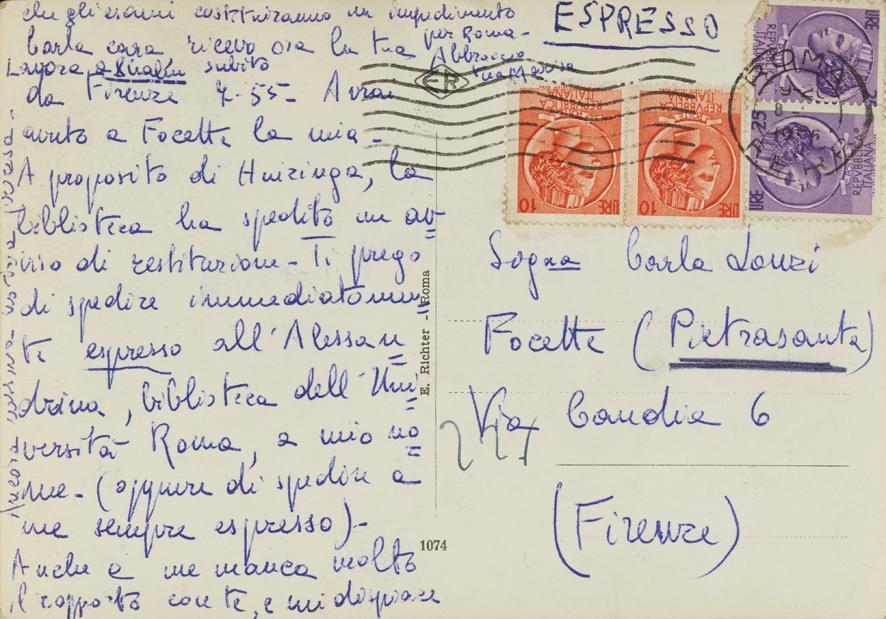 che gli esami costituiranno un impedimento
per Roma-
Abbraccia
tua Marisa
Carla cara ricevo ora la tua
Lavora a subito
da Firenze 7-55- Avrai
avuto a Focette la mia-
A proposito di Huizinga, la
biblioteca ha spedito un av=
viso di restituzione- Ti prego
di spedire immediatamen=
te espresso all'Alessan=
drina, biblioteca dell'Uni=
versità Roma, a mio no=
me- (oppure di spedire a
me sempre espresso)-
Anche a me manca molto
il rapporto con te, e mi dispiace
Ancora nessuna vostra
E. Richter - Roma
1074
ESPRESSO
LIRE 25
REPUBBLICA ITALIANA
LIRE 25
REPUBBLICA ITALIANA
LIRE 10
REPUBBLICA ITALIANA
LIRE 10
REPUBBLICA ITALIANA
ROMA
1956
Sogna Carla Lonzi
Focette (Pietrasanta)
Via Candia 6
(Firenze)